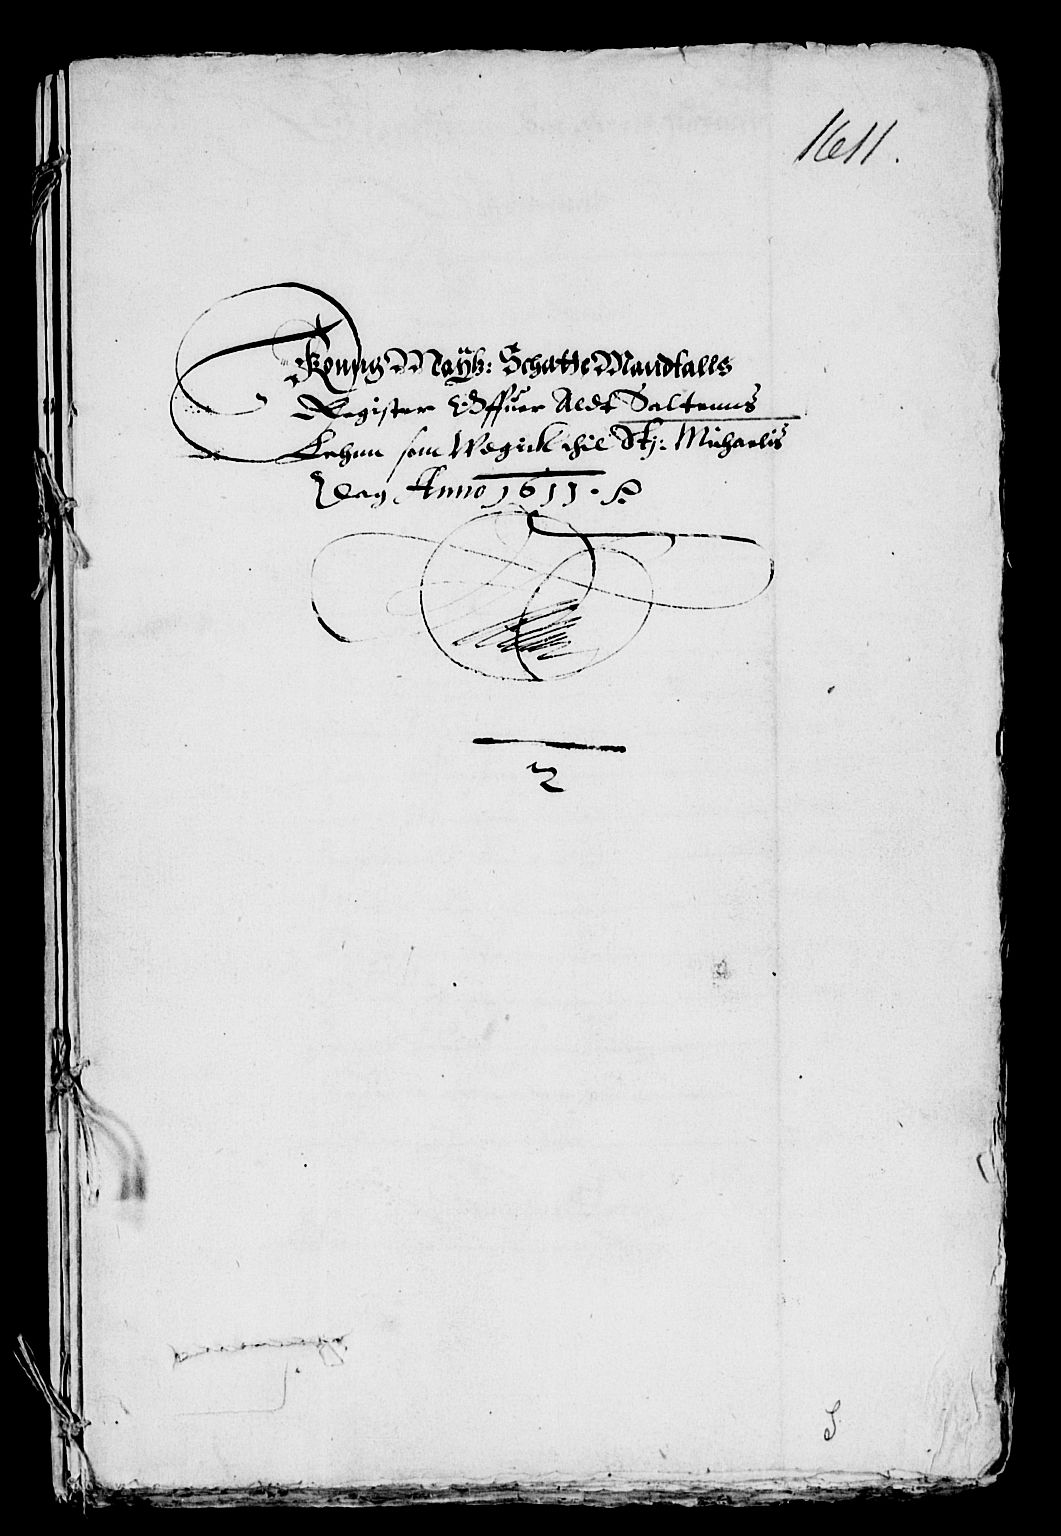 1611.
Konng Maÿtz: Schatte Mandtalls
Register Offuer Aldt Saltenns
Lehnn som Wegick thil Stj: Michaelis
Dag Anno 1611.
2